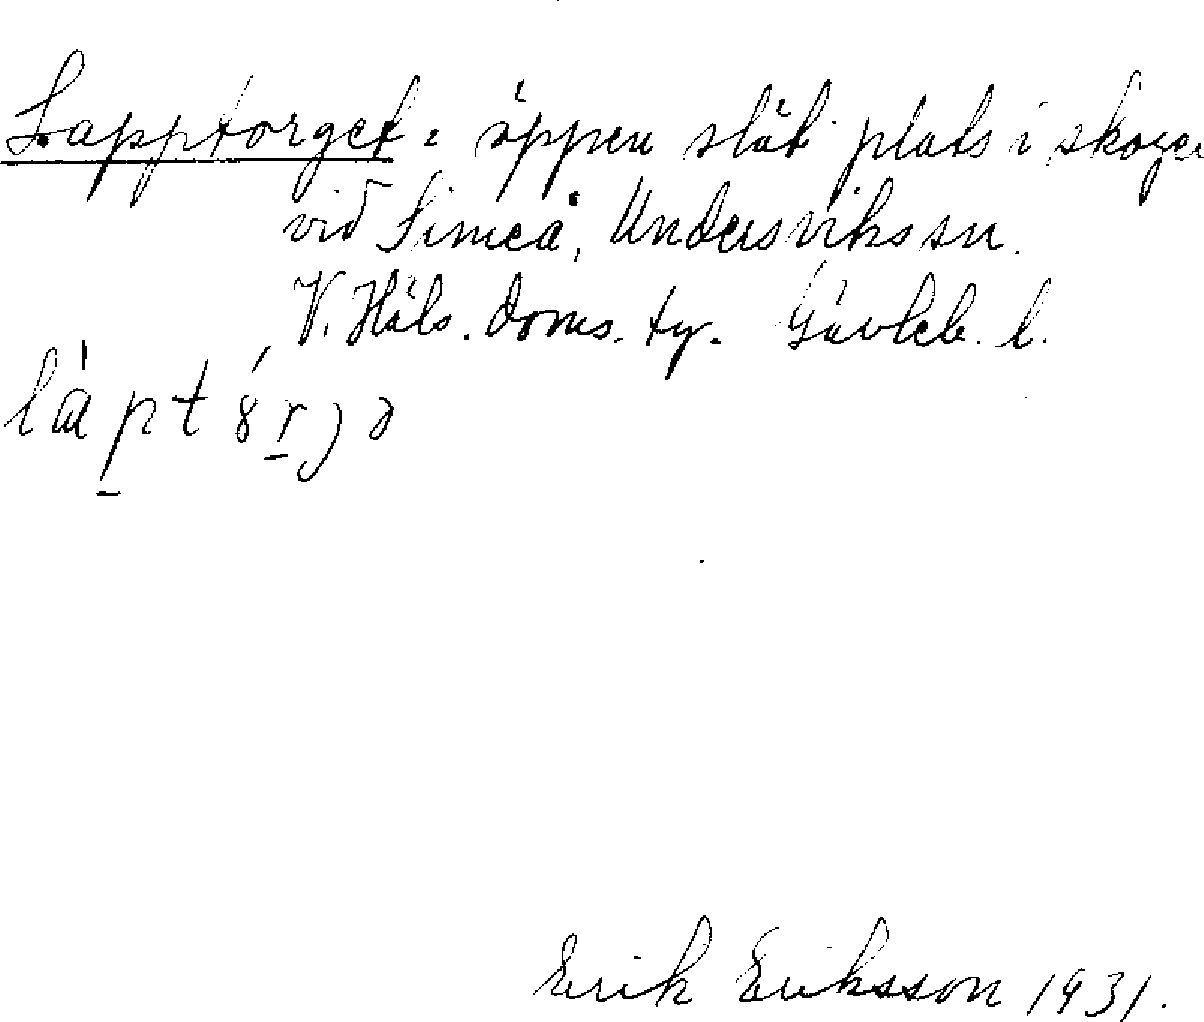 Lapptorget: öppen slät plats i skogen
vid Simeå, Undersviks sn.
V. Häls. doms. ty. Gävleb. l.
Erik Eriksson 1931.